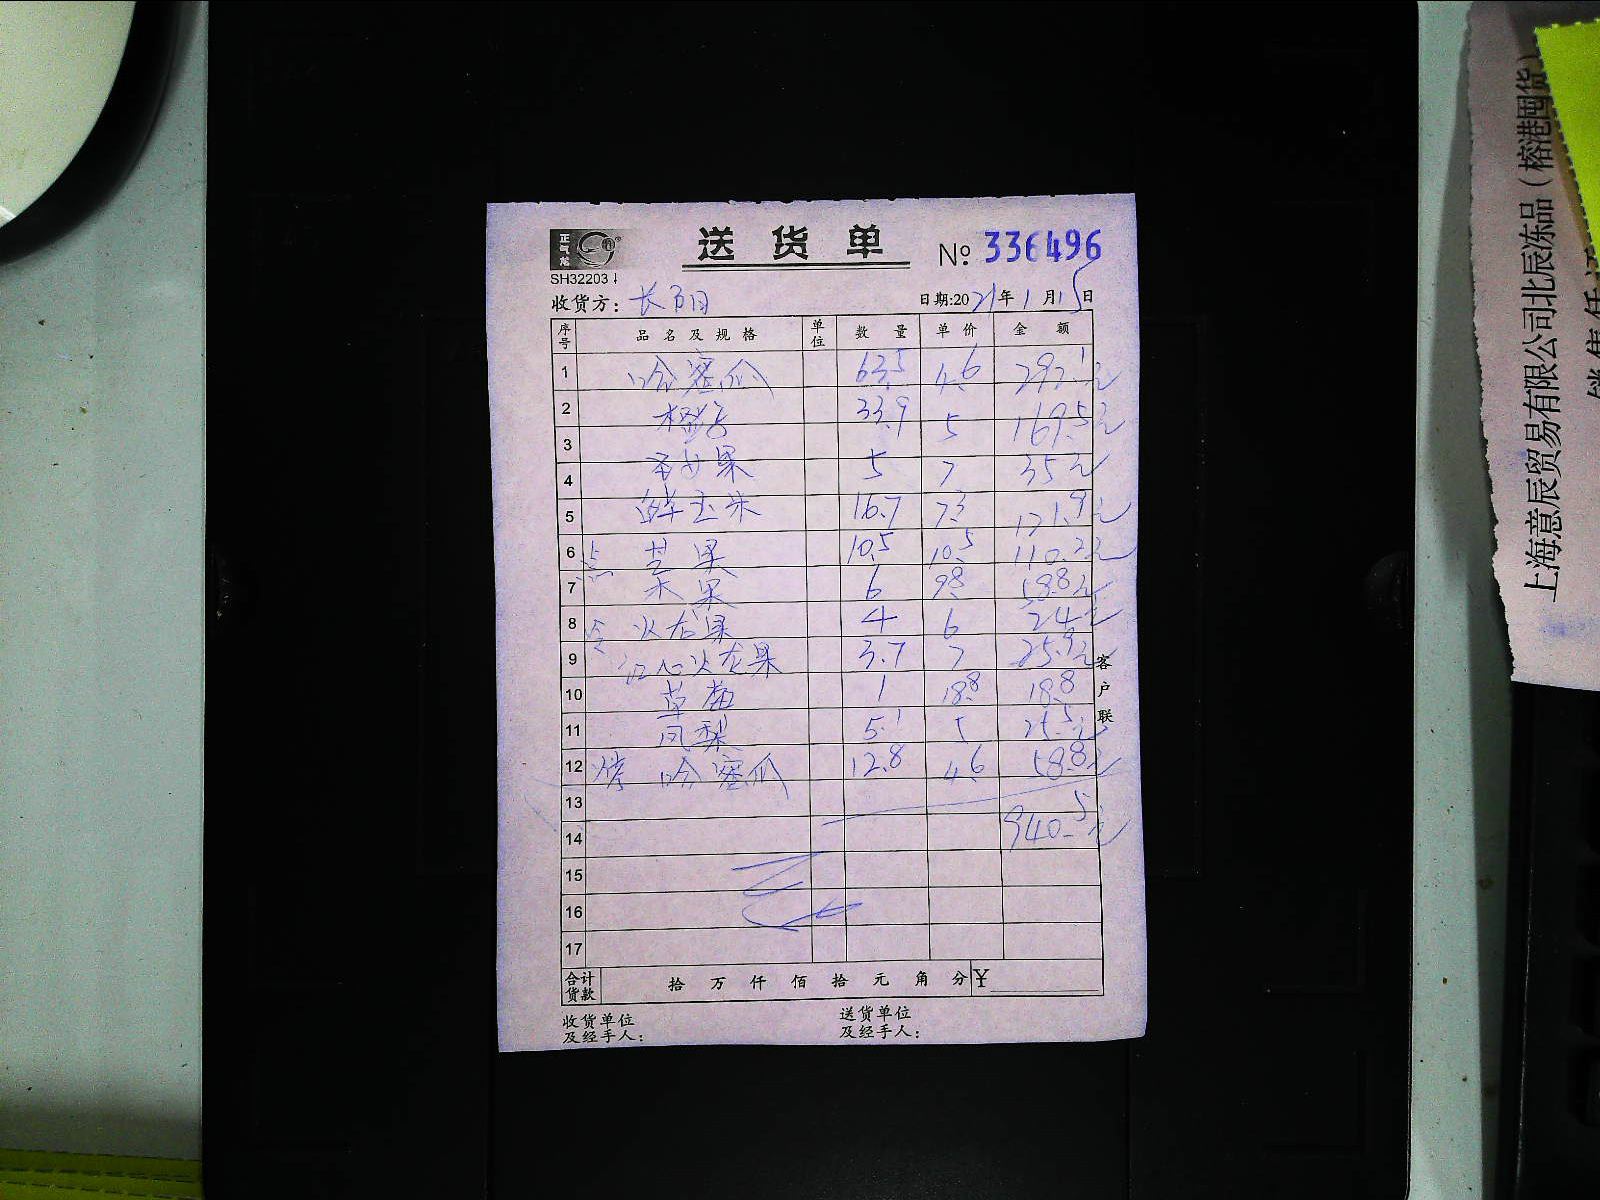 正气龙
送货单
No 336496
SH32203
收货方：长阳
日期:2021年1月15日
序号 品名及规格 单位 数量 单价 金额
1 哈蜜瓜 63.5 4.6 292.1元
2 橙子 33.9 5 169.5元
3
4 圣女果 5 7 35元
5 鲜玉米 16.7 7.3 121.9元
6 点 芒果 10.5 10.5 110.2元
7 木果 6 9.8 58.8元
8 火龙果 4 6 24元
9 红心火龙果 3.7 7 25.9元
10 草莓 1 18.8 18.8
11 凤梨 5.1 5 25.5元
12 哈蜜瓜 12.8 4.6 58.8元
13
14 940.5元
15
16
17
合计货款 拾 万 仟 佰 拾 元 角 分 ¥
收货单位及经手人：
送货单位及经手人：
客户联
上海意辰贸易有限公司北辰冻品（榕港囤货）